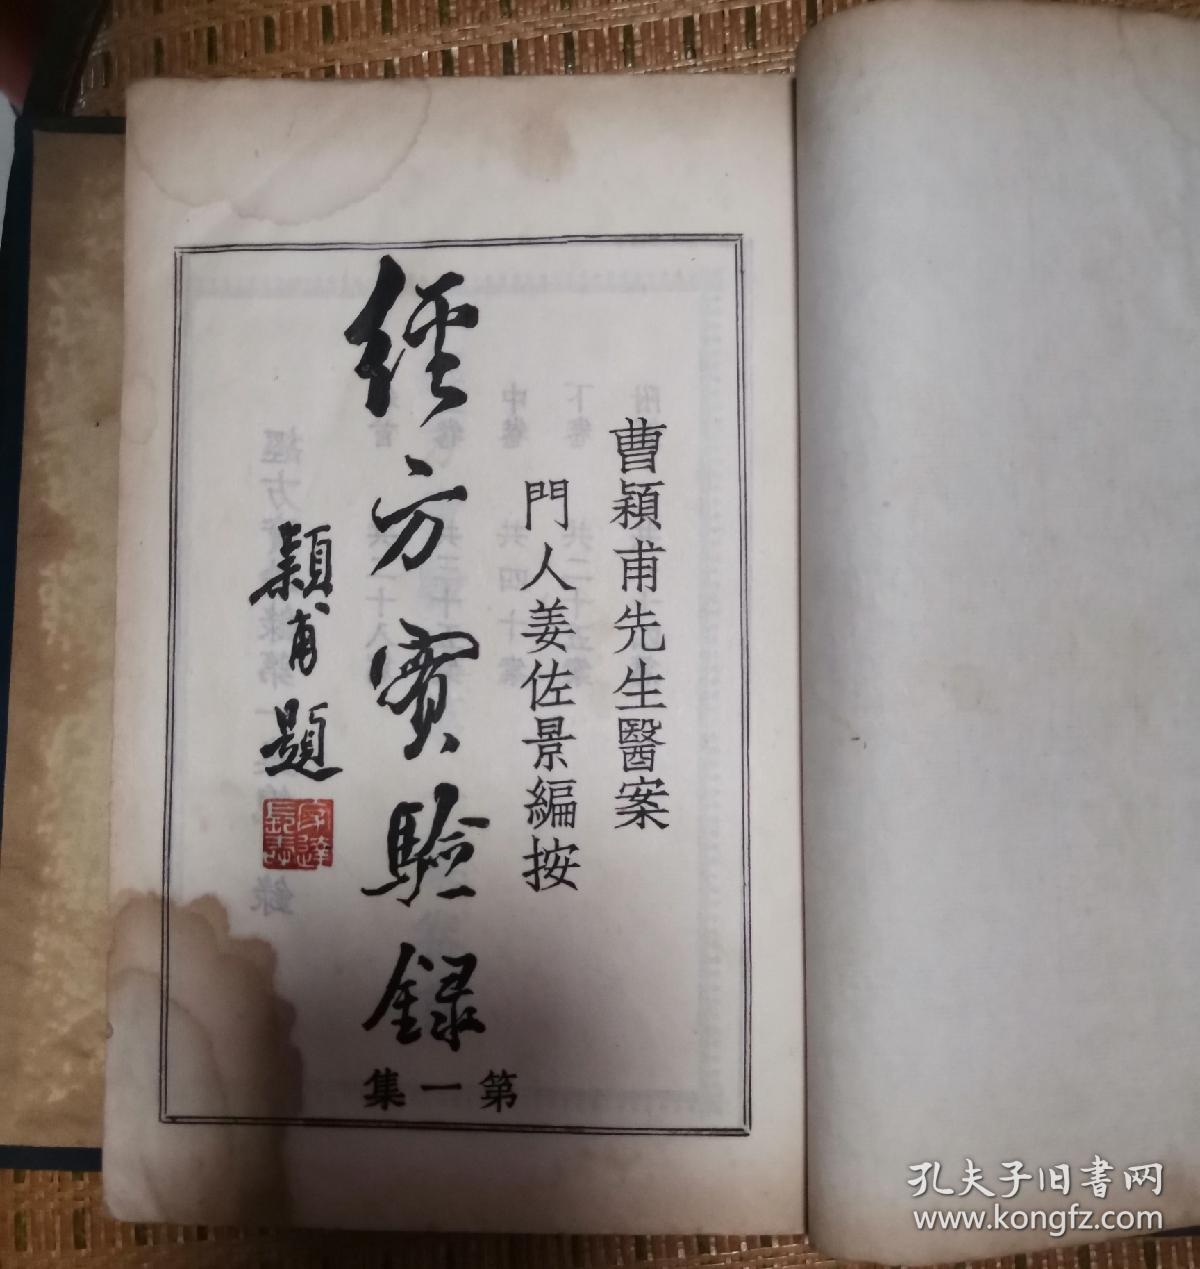 曹穎甫先生醫案
門人姜佐景編按
經方實驗録
第一集
穎甫題
孔夫子旧书网
www.kongfz.com